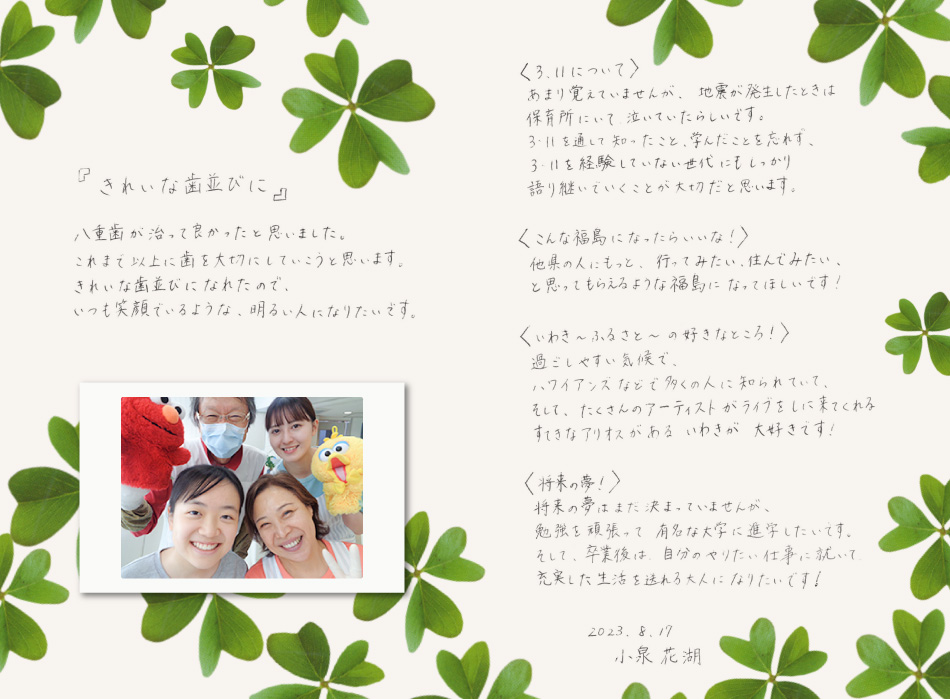 『きれいな歯並びに』
八重歯が治って良かったと思いました。
これまで以上に歯を大切にしていこうと思います。
きれいな歯並びになれたので、
いつも笑顔でいるような、明るい人になりたいです。
〈3.11について〉
あまり覚えていませんが、地震が発生したときは
保育所にいて泣いていたらしいです。
3・11を通して知ったこと、学んだことを忘れず、
3・11を経験していない世代にもしっかり
語り継いでいくことが大切だと思います。
〈こんな福島になったらいいな！〉
他県の人にもっと、行ってみたい、住んでみたい、
と思ってもらえるような福島になってほしいです！
〈いわき～ふるさと～の好きなところ！〉
過ごしやすい気候で、
ハワイアンズなどで多くの人に知られていて、
そして、たくさんのアーティストがライブをしに来てくれる
すてきなアリオスがあるいわきが大好きです！
〈将来の夢！〉
将来の夢はまだ決まっていませんが、
勉強を頑張って有名な大学に進学したいです。
そして、卒業後は、自分のやりたい仕事に就いて
充実した生活を送れる大人になりたいです！
2023.8.17
小泉花湖